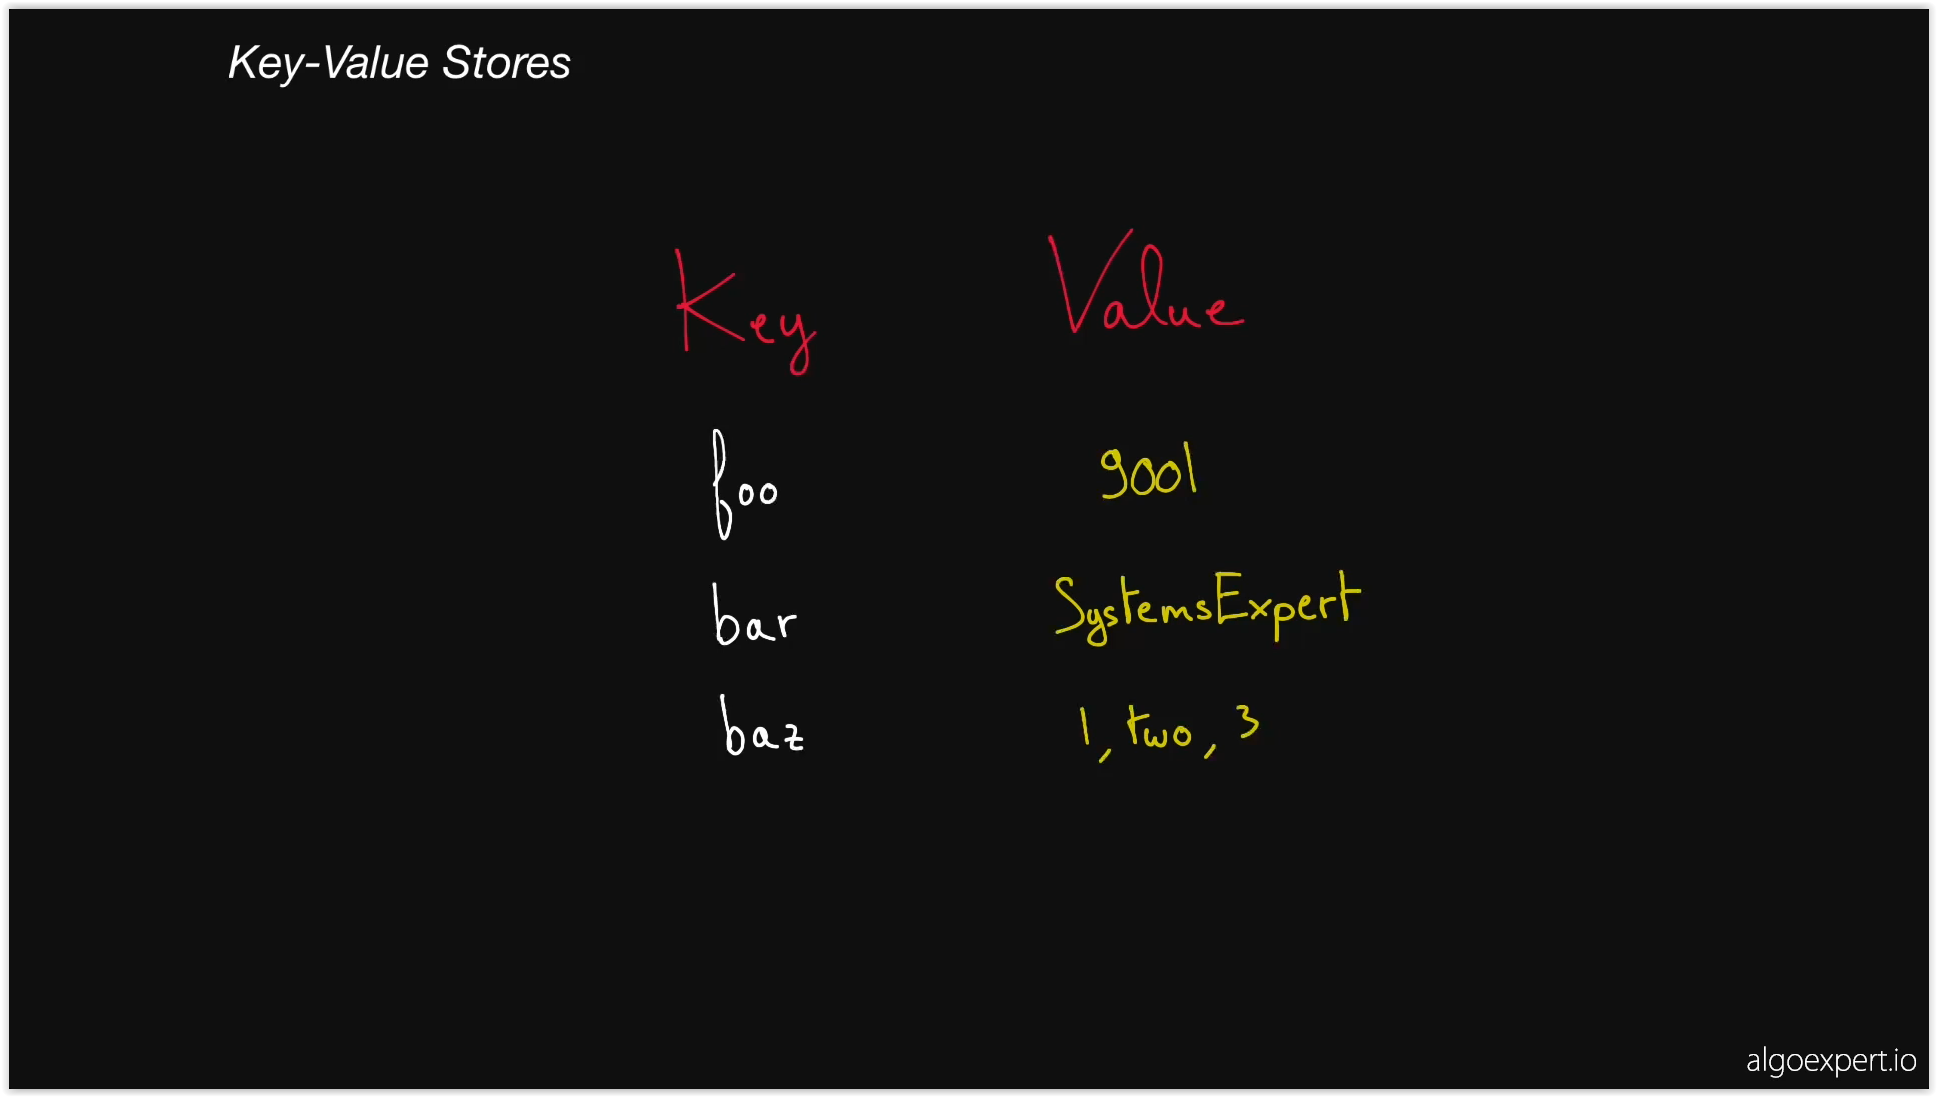 Key-Value Stores
Key Value
foo 9001
bar SystemsExpert
baz 1, two, 3
algoexpert.io